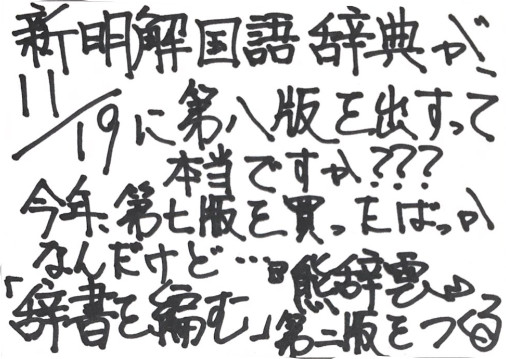 新明解国語辞典が、
11/19に第八版を出すって
本当ですか???
今年、第七版を買ったばっか
なんだけど…『熊辞雲』
「辞書を編む」第二版をつくる